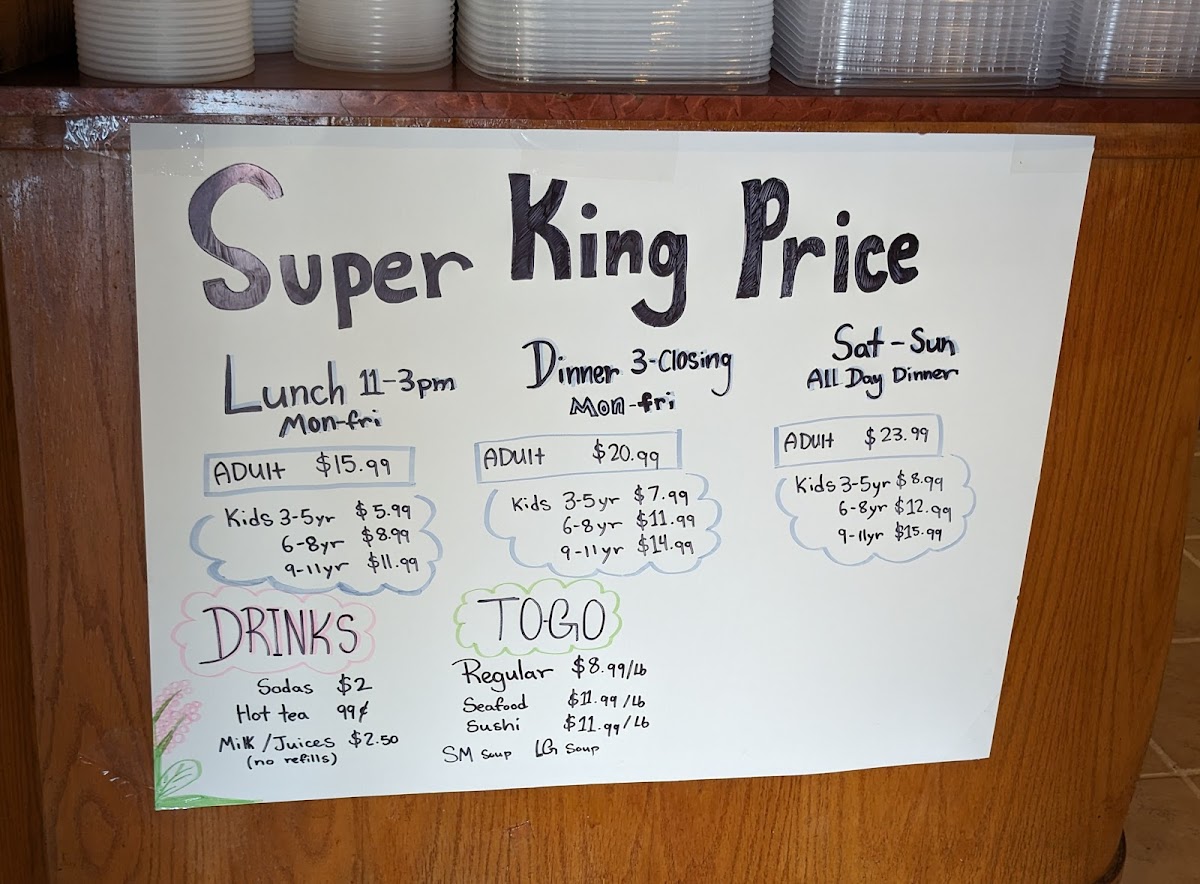 Super King Price
Lunch 11-3pm
Mon-fri
ADUlt $15.99
Kids 3-5yr $5.99
6-8yr $8.99
9-11yr $11.99
Dinner 3-Closing
Mon-fri
ADUlt $20.99
Kids 3-5yr $7.99
6-8yr $11.99
9-11yr $14.99
Sat-Sun
All Day Dinner
ADUlt $23.99
Kids 3-5yr $8.99
6-8yr $12.99
9-11yr $15.99
DRINKS
Sodas $2
Hot tea 99¢
Milk/Juices $2.50
(no refills)
TO-GO
Regular $8.99/lb
Seafood $11.99/lb
Sushi $11.99/lb
SM Soup LG Soup